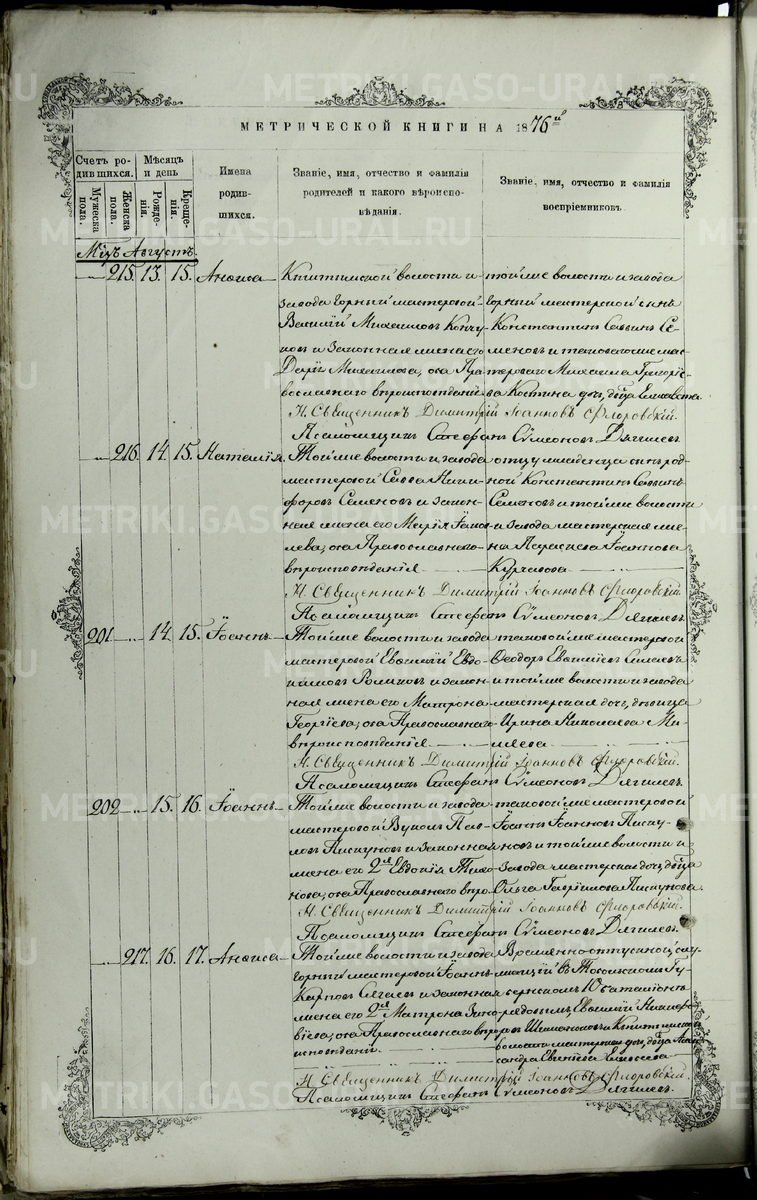 МЕТРИЧЕСКОЙ КНИГИ НА 1876й
Счетъ ро-
дившихся.
Мѣсяцъ
и день
Имена
родив-
шихся.
Званіе, имя, отчество и фамилія
родителей и какого вѣроиспо-
вѣданія.
Званіе, имя, отчество и фамилія
воспріемниковъ.
Мужеска
пола.
Женска
пола.
Рожде-
нія.
Креще-
нія.
Мцъ Августъ.
215. 13. 15. Анѳиса
Кыштымской волости и
завода горный мастеровой
Василий Михаиловъ
и законная жена его
Дарія Михаилова, оба Пра-
вославнаго вѣроисповѣданія
той же волости и завода
горный мастерской сынъ
Константинъ Саввинъ Се-
меновъ и таковаго же мас-
тероваго Михаила Григорье-
ва Костина дочь, дѣвица Елисавета
Н. Священникъ Димитрій Іоанновъ Флоровскій.
Псаломщикъ Стефанъ Сѵмеоновъ Дягилев.
216. 14. 15. Наталія.
Той же волости и завода
мастеровой Савва Ники-
форовъ Семеновъ и закон-
ная жена его Марія Іаков-
лева, оба Православнаго
вѣроисповѣданія
отцу младенца сынъ род-
ной Константинъ Саввинъ
Семеновъ и той же волости
и завода мастерская же-
на Параскева Іоаннова
Н. Священникъ Димитрій Іоанновъ Флоровскій
Псаломщикъ Стефанъ Сѵмеоновъ Дягилев.
201 14. 15. Іоаннъ
Той же волости и завода
мастеровой Евѳимій Евдо-
кимовъ и закон-
ная жена его Матрона
Георгіева, оба Православнаго
вѣроисповѣданія
таковой же мастеровой
Ѳеодоръ Евѳиміев
и той же волости и завода
мастерская дочь, дѣвица
Ирина Николаева
Н. Священникъ Димитрій Іоанновъ Флоровскій.
Псаломщикъ Стефанъ Сѵмеоновъ Дягилев.
202 15. 16. Іоаннъ
Той же волости и завода
мастеровой Вуколъ Пав-
ловъ Пискуновъ и законная
жена его 2я Евдокія Тихо-
нова, оба Православнаго вѣро.
таковой же мастеровой
Іоаннъ Іоанновъ Писку-
новъ и той же волости и
завода мастерская дочь, дѣвица
Ольга Гавріилова Пискунова.
Н. Священникъ Димитрій Іоанновъ Флоровскій.
Псаломщикъ Стефанъ Сѵмеоновъ Дягилев.
217. 16. 17. Анѳиса
Той же волости и завода
горный мастеровой Іоаннъ
Карповъ и законная
жена его 2я Матрона Зино-
віева, оба Православнаго вѣро-
исповѣданія
Временно-отпускной, слу-
жащій въ Тобольскомъ Гу-
бернскомъ баталіонѣ
рядовымъ, Евѳимій Никифо-
ровъ и Кыштымской
волости мастерская дочь, дѣвица Алек-
сандра Евгеніева
Н. Священникъ Димитрій Іоанновъ Флоровскій.
Псаломщикъ Стефанъ Сѵмеоновъ Дягилев.
METRIKI.GASO-URAL.RU